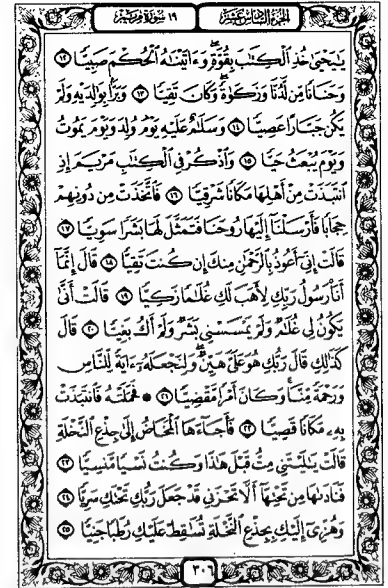 الجزء السادس عشر ١٩ سورة مريم
يَٰيَحْيَىٰ خُذِ ٱلْكِتَٰبَ بِقُوَّةٍۖ وَءَاتَيْنَٰهُ ٱلْحُكْمَ صَبِيًّا ١٢
وَحَنَانًا مِّن لَّدُنَّا وَزَكَوٰةًۖ وَكَانَ تَقِيًّا ١٣ وَبَرًّۢا بِوَٰلِدَيْهِ وَلَمْ
يَكُن جَبَّارًا عَصِيًّا ١٤ وَسَلَٰمٌ عَلَيْهِ يَوْمَ وُلِدَ وَيَوْمَ يَمُوتُ
وَيَوْمَ يُبْعَثُ حَيًّا ١٥ وَٱذْكُرْ فِى ٱلْكِتَٰبِ مَرْيَمَ إِذِ
ٱنتَبَذَتْ مِنْ أَهْلِهَا مَكَانًا شَرْقِيًّا ١٦ فَٱتَّخَذَتْ مِن دُونِهِمْ
حِجَابًا فَأَرْسَلْنَآ إِلَيْهَا رُوحَنَا فَتَمَثَّلَ لَهَا بَشَرًا سَوِيًّا ١٧
قَالَتْ إِنِّىٓ أَعُوذُ بِٱلرَّحْمَٰنِ مِنكَ إِن كُنتَ تَقِيًّا ١٨ قَالَ إِنَّمَآ
أَنَا۠ رَسُولُ رَبِّكِ لِأَهَبَ لَكِ غُلَٰمًا زَكِيًّا ١٩ قَالَتْ أَنَّىٰ
يَكُونُ لِى غُلَٰمٌ وَلَمْ يَمْسَسْنِى بَشَرٌ وَلَمْ أَكُ بَغِيًّا ٢٠ قَالَ
كَذَٰلِكِ قَالَ رَبُّكِ هُوَ عَلَىَّ هَيِّنٌۖ وَلِنَجْعَلَهُۥٓ ءَايَةً لِّلنَّاسِ
وَرَحْمَةً مِّنَّاۚ وَكَانَ أَمْرًا مَّقْضِيًّا ٢١ ۞ فَحَمَلَتْهُ فَٱنتَبَذَتْ
بِهِۦ مَكَانًا قَصِيًّا ٢٢ فَأَجَآءَهَا ٱلْمَخَاضُ إِلَىٰ جِذْعِ ٱلنَّخْلَةِ
قَالَتْ يَٰلَيْتَنِى مِتُّ قَبْلَ هَٰذَا وَكُنتُ نَسْيًا مَّنسِيًّا ٢٣
فَنَادَىٰهَا مِن تَحْتِهَآ أَلَّا تَحْزَنِى قَدْ جَعَلَ رَبُّكِ تَحْتَكِ سَرِيًّا ٢٤
وَهُزِّىٓ إِلَيْكِ بِجِذْعِ ٱلنَّخْلَةِ تُسَٰقِطْ عَلَيْكِ رُطَبًا جَنِيًّا ٢٥
٣٠٦